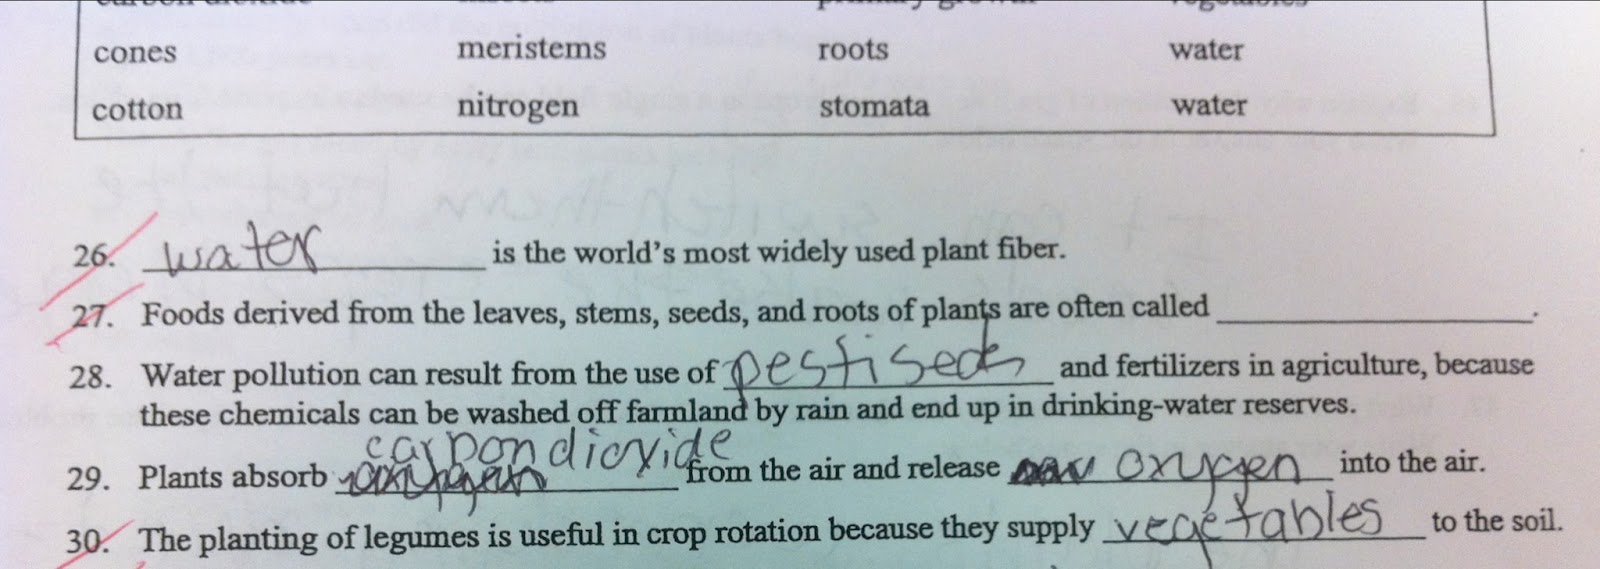 carbon dioxide insects primary growth vegetables
cones meristems roots water
cotton nitrogen stomata water
26. water is the world's most widely used plant fiber.
27. Foods derived from the leaves, stems, seeds, and roots of plants are often called ____.
28. Water pollution can result from the use of pestiseds and fertilizers in agriculture, because
these chemicals can be washed off farmland by rain and end up in drinking-water reserves.
29. Plants absorb carbondioxide from the air and release oxygen into the air.
30. The planting of legumes is useful in crop rotation because they supply vegetables to the soil.